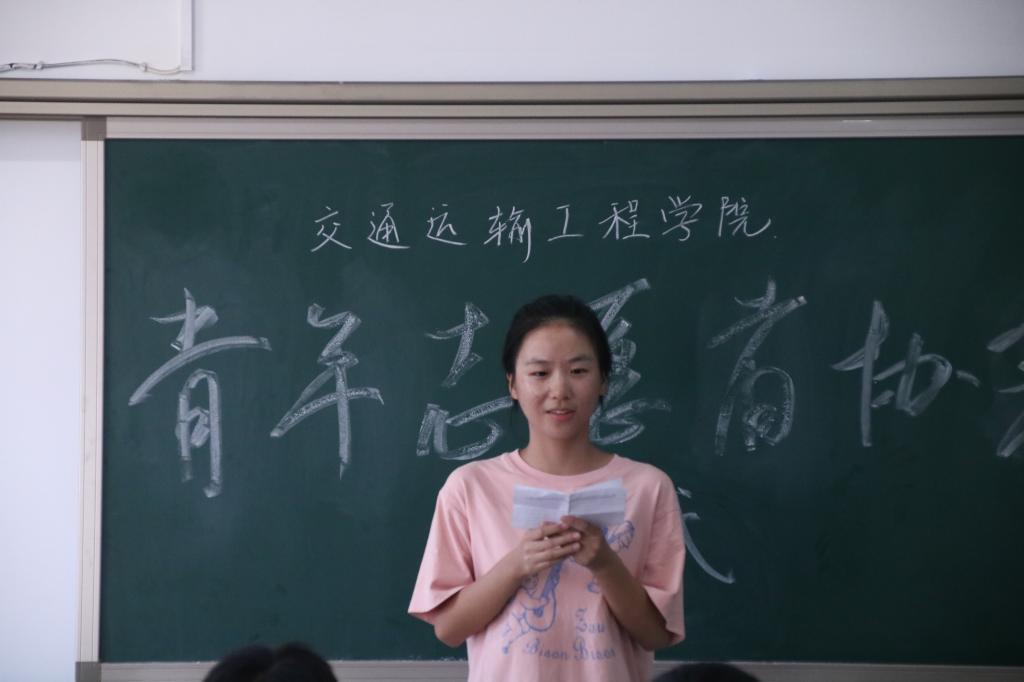 交通运输工程学院
青年志愿者协会
Zou
Bison Bison